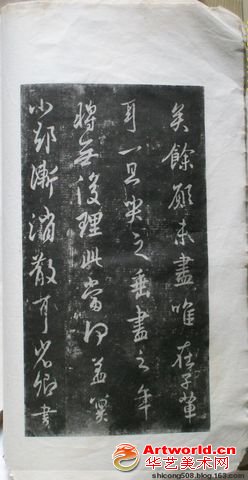 矣餘願未盡唯在子輩
耳一旦哭之垂盡之年
將無復理此當何益冀
小却漸消散耳省卿書
Artworld.cn
华艺美术网
shicong508.blog.163.com